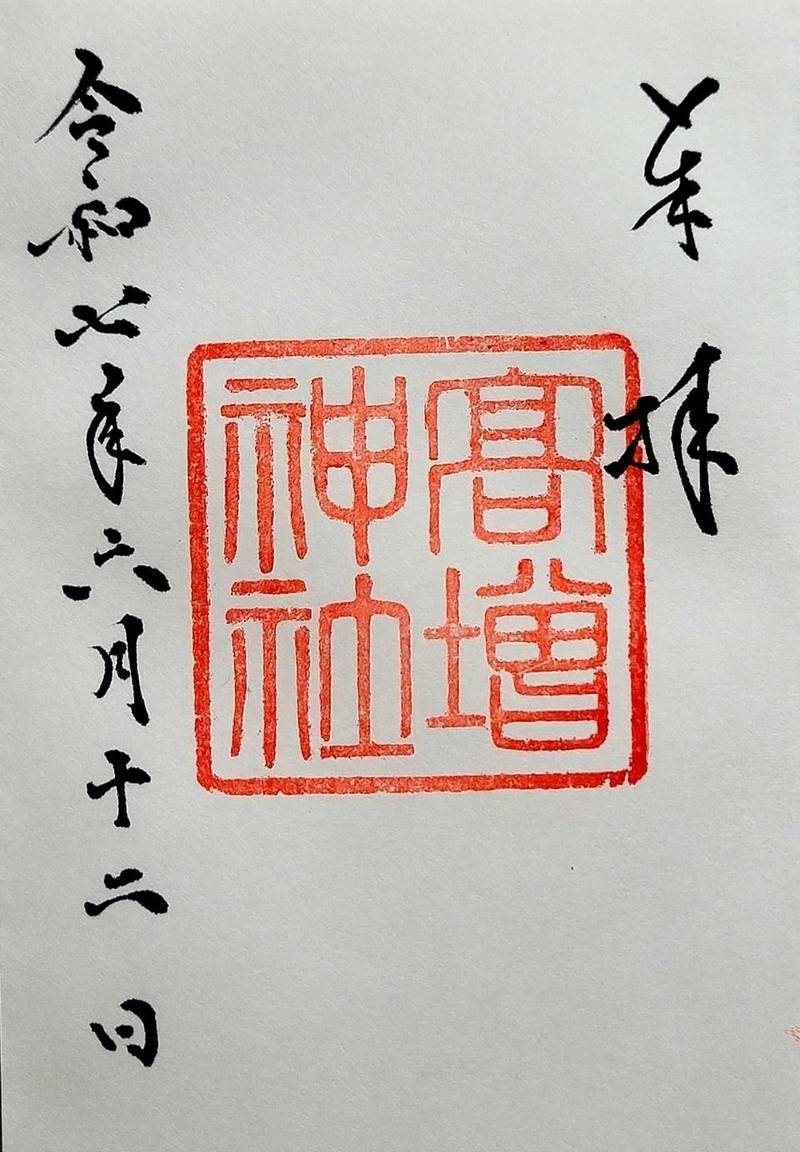 奉拝
髙増
神社
令和七年六月十二日